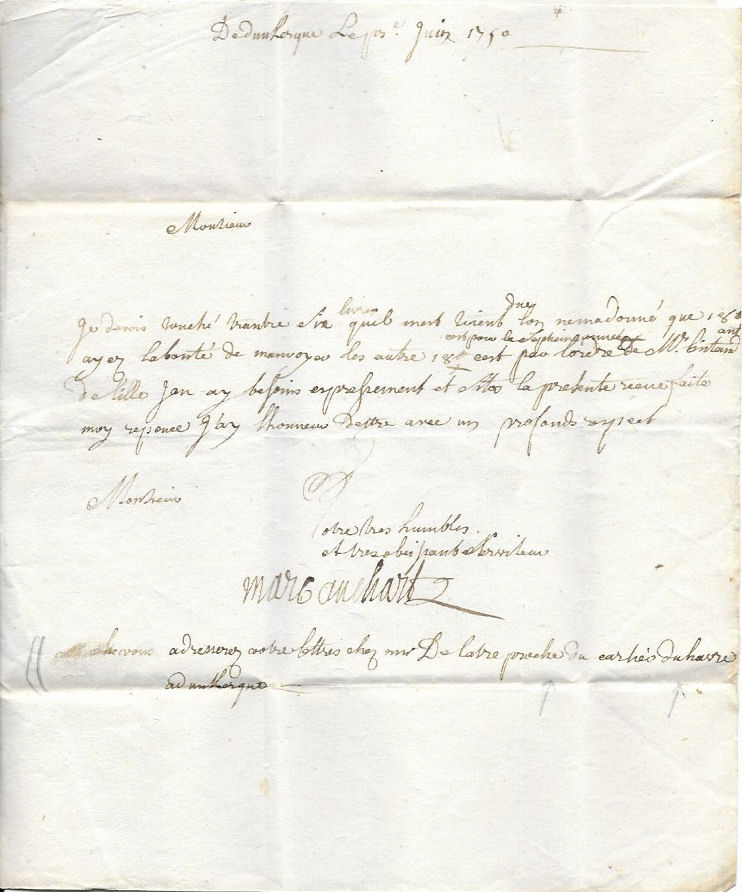 De dunkerque Le pre. Juin 1750
Monsieur
Je devois touché trantte Six livres quil mest vient dues lon nemadonné que 18#
ayez labonté de menvoyer les autre 18# cest par lordre de Mr.
de lille Jen ay besoins expressement et la presente receue faite
moy reponce Jay lhonneur Destre avec un profonds respect
Monsieur
Votre tres humbles
et tres obeissant Serviteur
marc
vous adresserez votre lettres chez mr De latre proche du du havre
a dunkerque